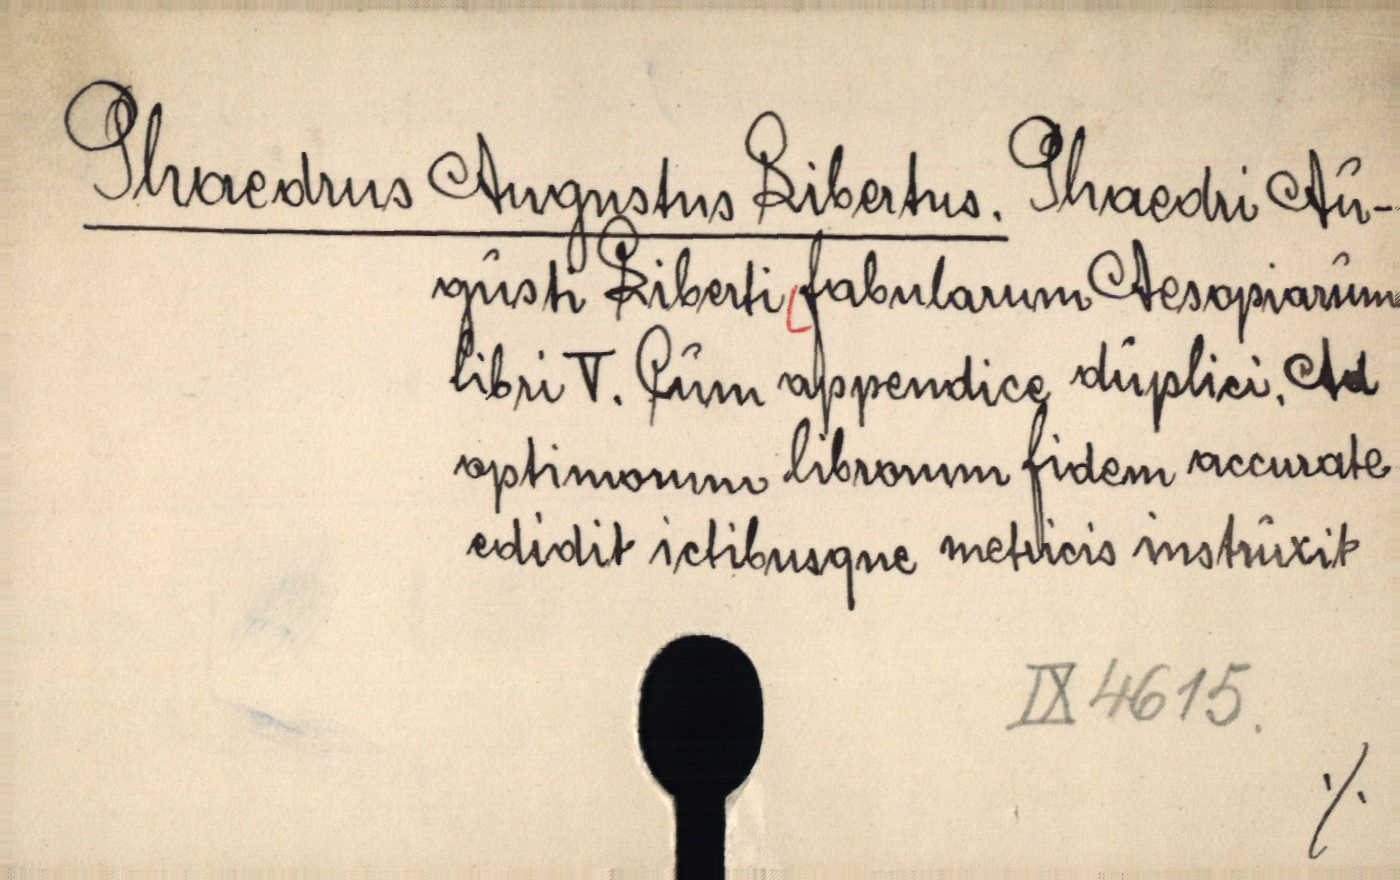 Phaedrus Augustus Libertus. Phaedri Aû-
gûsti Liberti fabularum Aesopiarûm
libri V. Cûm appendice dûplici. Ad
optimorum librorum fidem accurate
edidit ictibusque metricis instrûxit
IX 4615.
./.